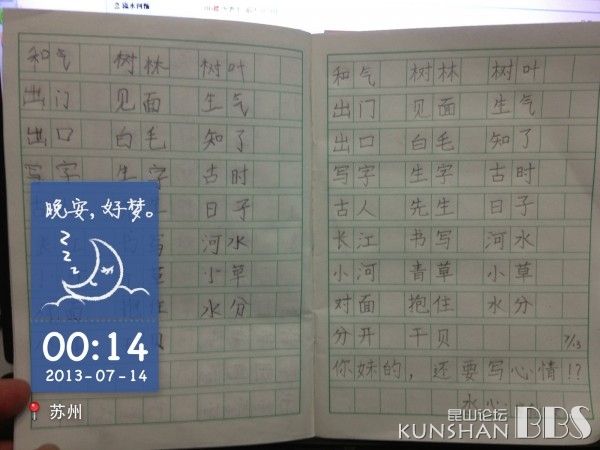 和气 树林 树叶
出门 见面 生气
出口 白毛 知了
写字 生字 古时
日子
河水
小草
水分
晚安,好梦。
z z z
00:14
2013-07-14
苏州
和气 树林 树叶
出门 见面 生气
出口 白毛 知了
写字 生字 古时
古人 先生 日子
长江 书写 河水
小河 青草 小草
对面 抱住 水分
分开 干贝
7/13
你妹的,还要写心情!?
昆山论坛
KUNSHAN BBS